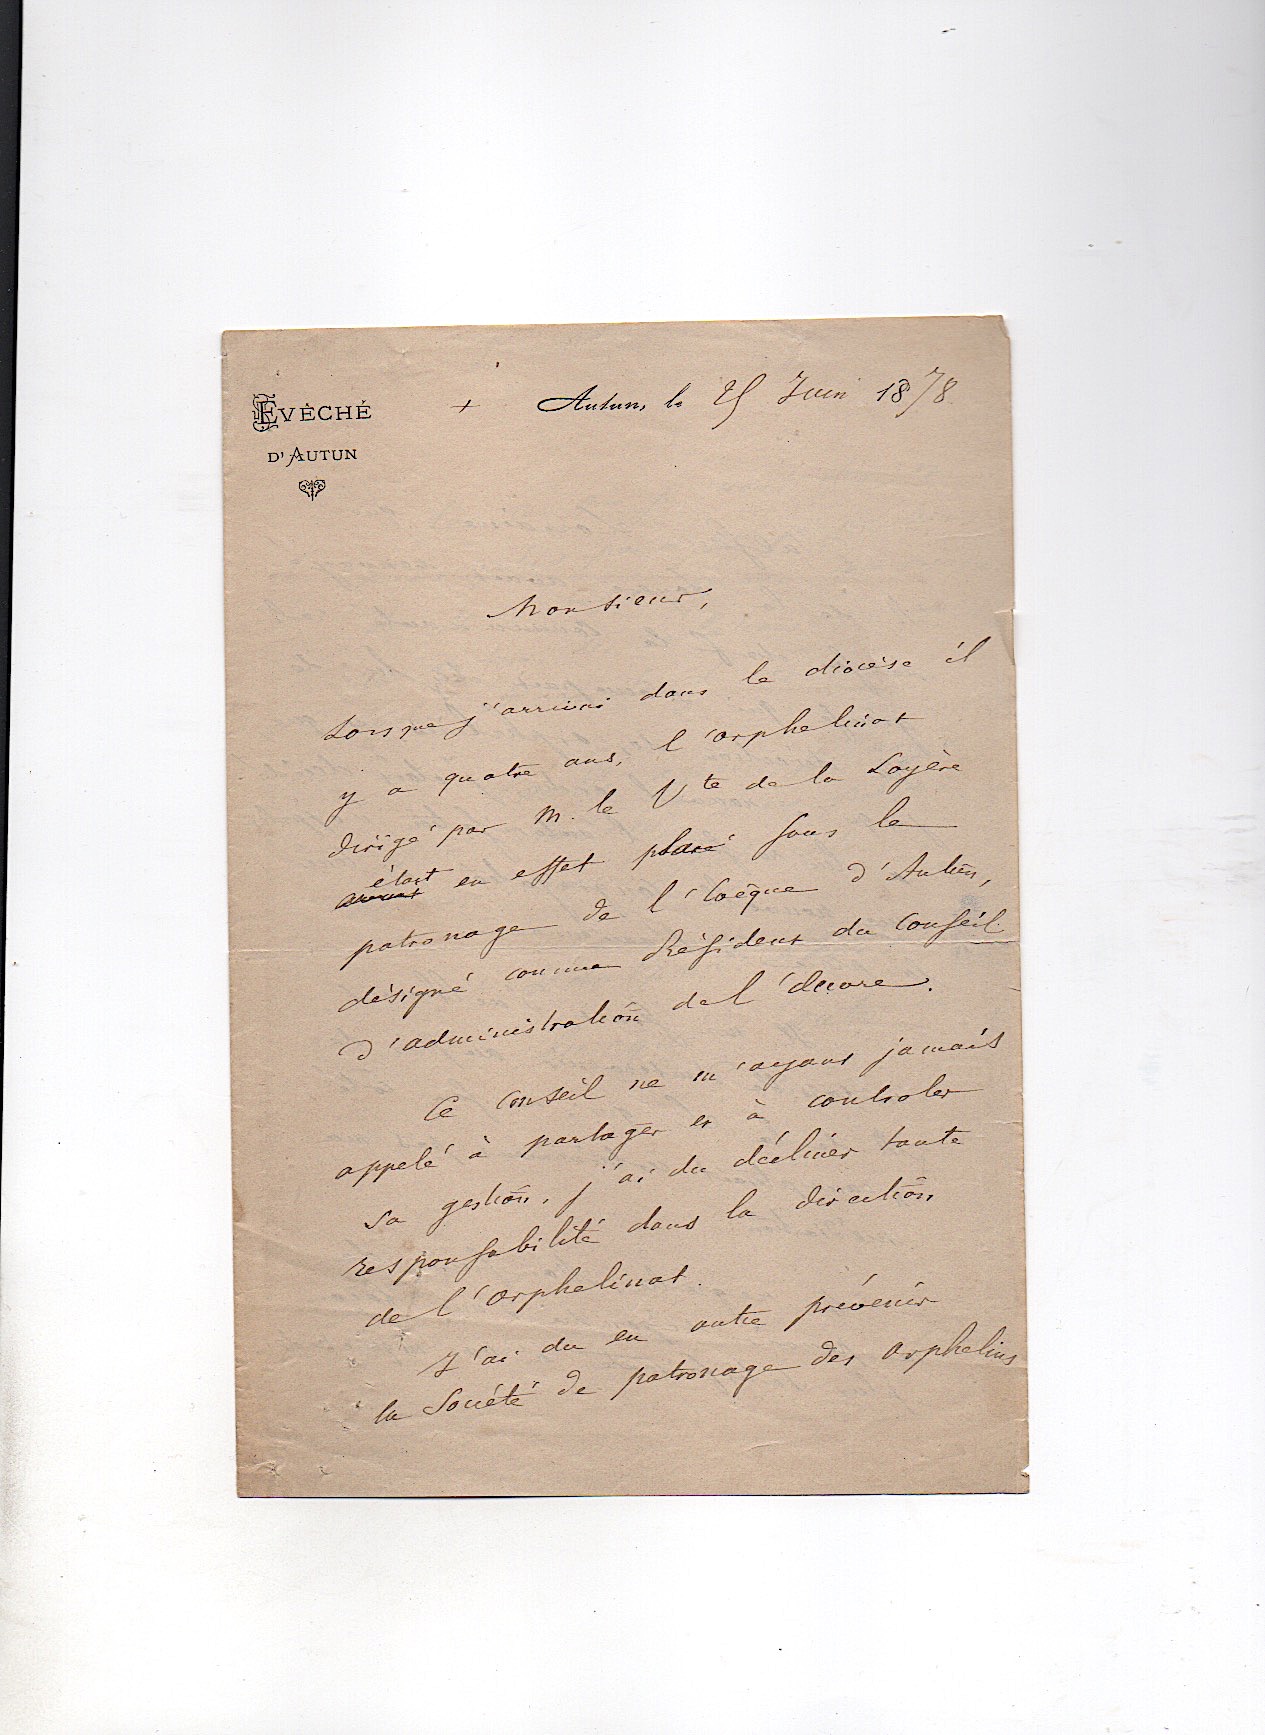 EVÊCHÉ
D'AUTUN
+ Autun, le 25 Juin 1878
Monsieur,
Lorsque j'arrivai dans le diocèse il
y a quatre ans, l'orphelinat
dirigé par M. le Vte de la Loyère
était en effet placé sous le
patronage de l'Evêque d'Autun,
désigné comme Président du Conseil
d'administration de l'œuvre.
Ce Conseil ne m'ayant jamais
appelé à partager et à controler
sa gestion, j'ai du décliner toute
responsabilité dans la direction
de l'orphelinat.
J'ai du en outre prévenir
la Société de patronage des orphelins